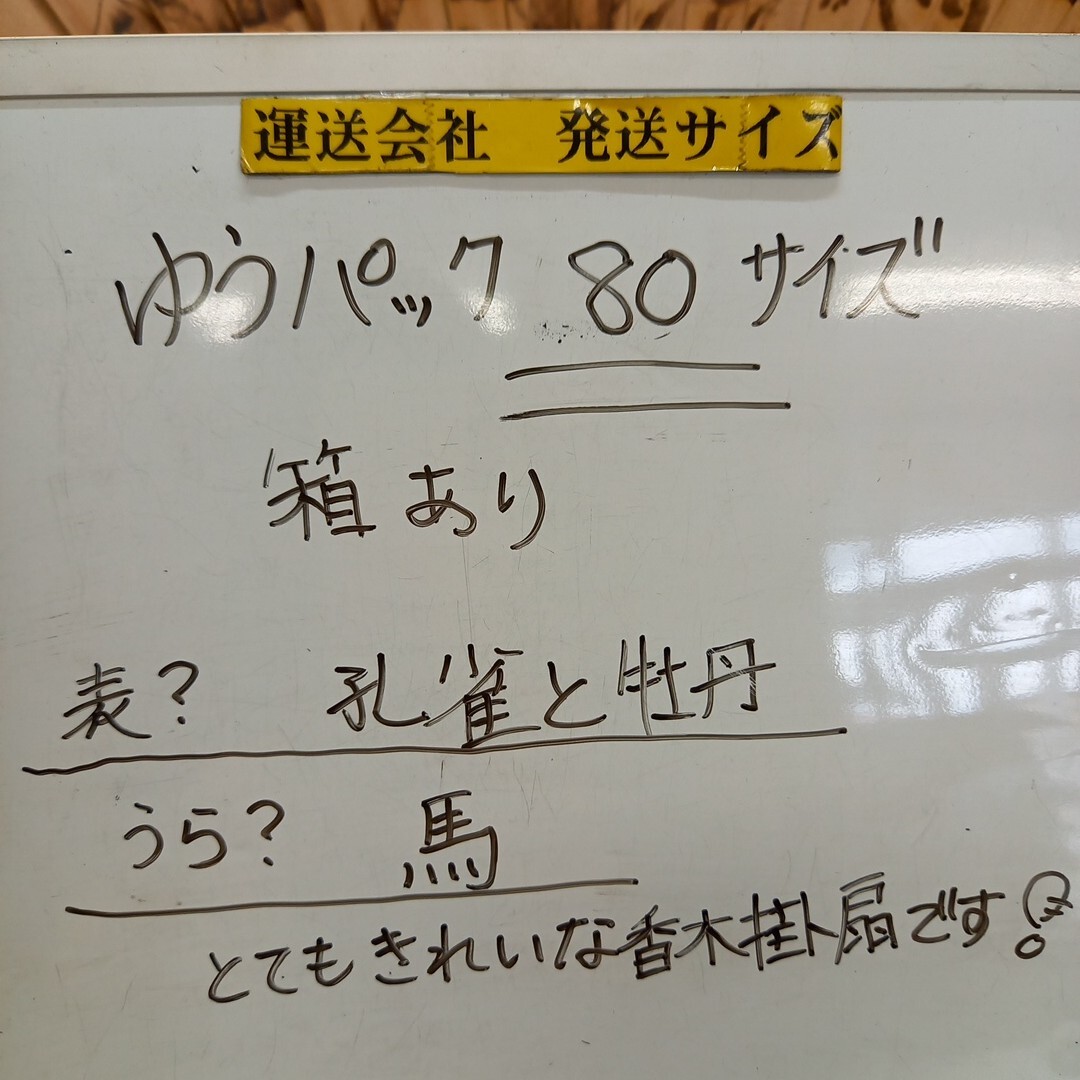 運送会社 発送サイズ
ゆうパック 80 サイズ
箱あり
表? 孔雀と牡丹
うら? 馬
とてもきれいな香木掛扇です!